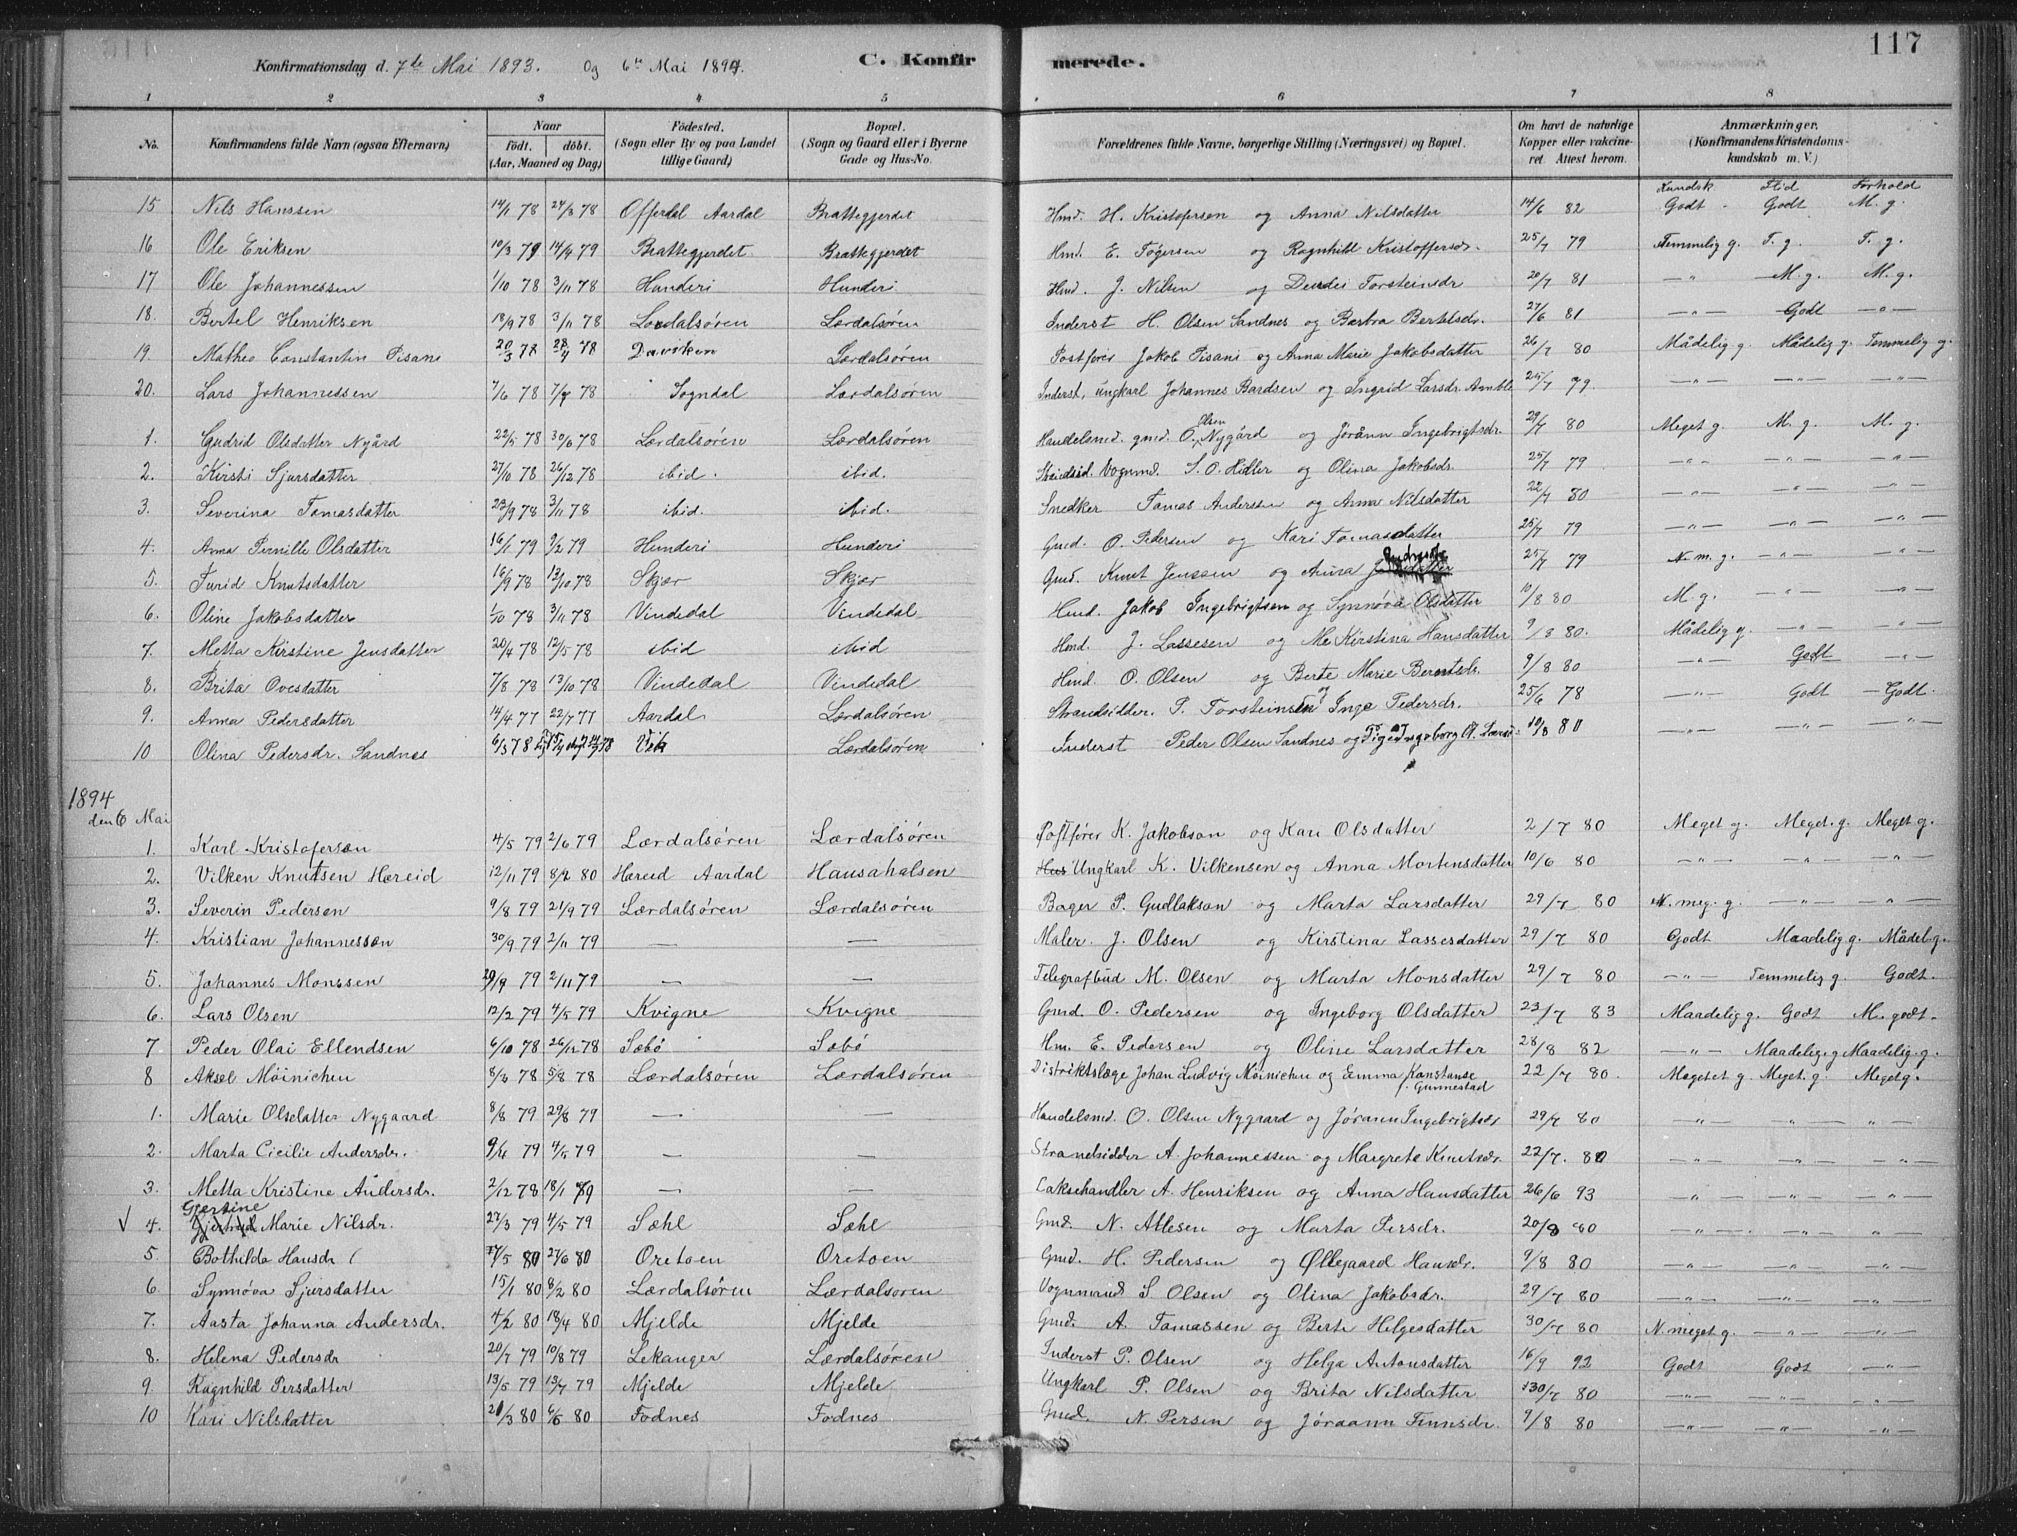 117
Konfirmationsdag d. 7de Mai 1893. Og 6te Mai 1894. C. Konfirmerede.
1 2 3 4 5 6 7 8
No. Konfirmandens fulde Navn (ogsaa Efternavn) Naar født. døbt. (Aar, Maaned og Dag) Fødested. (Sogn eller By og paa Landet tillige Gaard) Bopæl. (Sogn og Gaard eller i Byerne Gade og Hus-No. Forældrenes fulde Navne, borgerlige Stilling (Næringsvei) og Bopæl. Om havt de naturlige Kopper eller vakcineret. Attest herom. Anmærkninger. (Konfirmandens Kristendomskundskab m. V.)
Kundsk Flid Forhold
15 Nils Hanssen 14/1 78 24/3 78 Offerdal Aardal Brattegjerdet Hmd. H. Kristofersen og Anna Nilsdatter 14/6 82 Godt - Godt M. g.
16 Ole Eriksen 10/3 79 14/4 79 Brattegjerdet Brattegjerdet Hmd. E. Togersen og Ragnhild Kristoffersdr. 25/7 79 Temmelig g. T. g. T. g.
17 Ole Johannessen 1/10 78 3/11 78 Hunderi Hunderi Hmd. J. Nilsen og Torsteinsdr 20/7 81 —"— M. g. M. g.
18. Bertel Henriksen 18/9 78 3/11 78 Lærdalsøren Lærdalsøren Inderst H. Olsen Sandnes og Barbra Bertelsdr. 27/6 81 —"— Godt —"—
19. Matheo Constantin Pisani 20/3 78 28/4 78 Daviken Lærdalsøren Postfører Jakob Pisani og Anna Marie Jakobsdatter 26/7 80 Mådelig g. Mådelig g. Temmelig g.
20. Lars Johannessen 7/6 78 7/7 78 Sogndal Lærdalsøren Inderst, ungkarl Johannes Bardsen og Ingrid Larsdr. Amble 25/7 79. —"— —"— —"—
1. Gudrid Olsdatter Nygård 22/5 78 30/6 78 Lærdalsøren Lærdalsøren Handelsmd. gmd. O. Olsen Nygård og Jørånn Ingebrigtsdr. 29/7 80 Meget g. M. g. M. g.
2. Kirsti Sjursdatter 27/10 78 26/12 78 ibid. ibid. Strandsid. Vognmd. S. O. Hidler og Olina Jakobsdr. 25/7 79 —"— —"— —"—
3. Severina Tomasdatter 23/9 78 3/11 78 ibid. ibid. Snedker Tomas Andersen og Anna Nilsdatter 22/7 80 —"— —"— —"—
4. Anna Pernille Olsdatter 16/1 79 9/2 79 Hunderi Hunderi Gmd. O. Pedersen og Kari Tomasdatter 25/7 79 —"— —"— —"—
5. Turid Knutsdatter 16/9 78 13/10 78 Skjær Skjær Gmd. Knut Jenssen og Anna 25/7 79 N. m. g. —"— —"—
6. Oline Jakobsdatter 1/10 78 3/11 78 Vindedal Vindedal Hmd. Jakob Ingebrigtsen og Synnøva Olsdatter 10/8 80 M. g. —"— —"—
7. Metta Kirstine Jensdatter 20/4 78 12/5 78 ibid ibid Hmd. J. Lassesen og Kirstina Hansdatter 9/8 80. Mådelig g. —"— —"—
8. Brita Ovesdatter 7/8 78 13/10 78 Vindedal Vindedal Hmd. O. Olsen og Berte Marie Berntsdr. 9/8 80 —"— Godt —"—
9. Anna Pedersdatter 14/4 77 22/7 77 Aardal Lærdalsøren Strandsidder. P. Torsteinsen og Inge Pedersdr. 25/6 78 —"— Godt - Godt.
10 Olina Pedersdr. Sandnes 6/3 78 Vik Lærdalsøren Inderst Peder Olsen Sandnes og Ingeborg 10/8 80 —"— —"— —"—
1894
den 6 Mai
1. Karl Kristofersen 4/5 79 2/6 79 Lærdalsøren Lærdalsøren Postfører K. Jakobson og Kari Olsdatter 2/7 80 Meget g. Meget. g. Meget g.
2. Vilken Knutsen Hæreid 12/11 79 8/2 80 Hæreid Aardal Hausahalsen Ungkarl K. Vilkensen og Anna Mortensdatter 10/6 80 —"— —"— —"—
3. Severin Pedersen 9/8 79 21/9 79 Lærdalsøren Lærdalsøren Bager P. Gudlakson og Marta Larsdatter 29/7 80 N. meg. g. —"— —"—
4. Kristian Johannessen 30/9 79 2/11 79 — — Maler. J. Olsen og Kirstina Lassesdatter 29/7 80 Godt Maadelig g. Mådel. g.
5. Johannes Monssen 29/9 79 2/11 79 — — Telegrafbud M. Olsen og Marta Monsdatter 29/7 80 —"— Temmelig g. Godt.
6. Lars Olsen 12/2 79 4/5 79 Kvigne Kvigne Gmd. O. Pedersen og Ingeborg Olsdatter 23/7 83 Maadelig g. Godt M. godt.
7 Peder Olai Ellendsen 6/10 78 26/12 78 Sæbø Sæbø Hm. E. Pedersen og Oline Larsdatter 28/8 82 —"— Maadelig. g Maadelig. g.
8 Aksel Möinichen 8/3 78 5/8 78 Lærdalsøren Lærdalsøren Distriktslæge Johan Ludvig Möinichen og Emma Konstanse f. Gunnestad 22/7 80. Meget g Meget. g. Meget g.
1. Marie Olsdatter Nygaard 8/8 79 29/8 79 — — Handelsmd. O. Olsen Nygaard og Jørann Ingebrigtsdr 29/7 80 —"— —"— —"—
2. Marta Cicilie Andersdr. 9/4 79 4/5 79 — — Strandsidder A. Johannessen og Margrete Knutsdr. 22/7. 80 —"— —"— —"—
3. Metta Kristine Andersdr. 2/12 78 18/1 79 — — Laksehandler A. Henriksen og Anna Hansdatter 26/6 93 —"— —"— —"—
√ 4. Gjertine Marie Nilsdr. 27/3 79 4/5 79 Sæhl Sæhl Gmd. N. Atlesen og Marta Persdr. 20/8 80 —"— —"— —"—
5. Bothilda Hansdr 17/5 80 27/6 80 Oretoen Oretoen Gmd. H. Pedersen og Øllegaard Hansdr. 9/8 80 —"— —"— —"—
6 Synnøva Sjursdatter 15/1 80 8/2 80 Lærdalsøren Lærdalsøren Vognmand S. Olsen og Olina Jakobsdr. 29/7 80 —"— —"— —"—
7. Aasta Johanna Andersdr. 4/2 80 18/4 80 Mjelde Mjelde Gmd. A. Tamassen og Berte Helgesdatter 30/7 80 N. meget g. —"— —"—
8. Helena Pedersdr 20/7 79 10/8 79 Lekanger Lærdalsøren Inderst P. Olsen og Helga Antonsdatter 16/9 92 Godt Godt —"—
9. Ragnhild Persdatter 13/5 79 13/7 79 Mjelde Mjelde Ungkarl P. Olsen og Brita Nilsdatter 30/7 80 —"— —"— —"—
10 Kari Nilsdatter 21/3 80 6/5 80 Fodnes Fodnes Gmd. N. Persen og Jøraann Finnsdr. 9/8 80 —"— —"— —"—